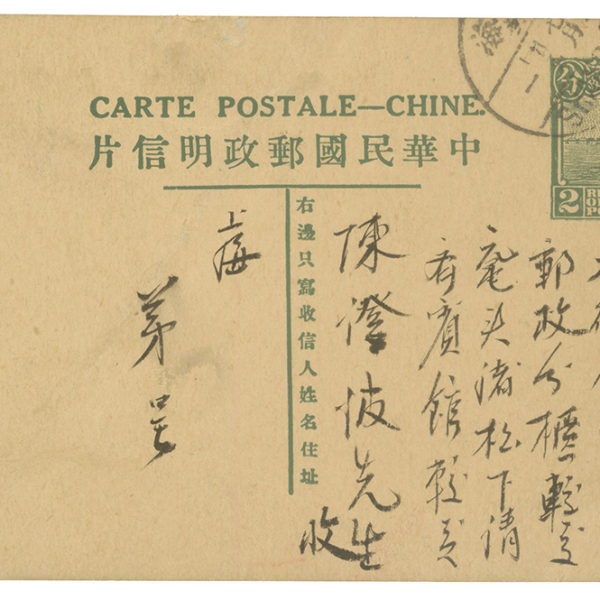 CARTE POSTALE—CHINE.
中華民國郵政明信片
郵政分櫃轉交
黿头渚松下清
齋賓館轉交
陳澄波先生
收
右邊只寫收信人姓名住址
上海
弟
分
2